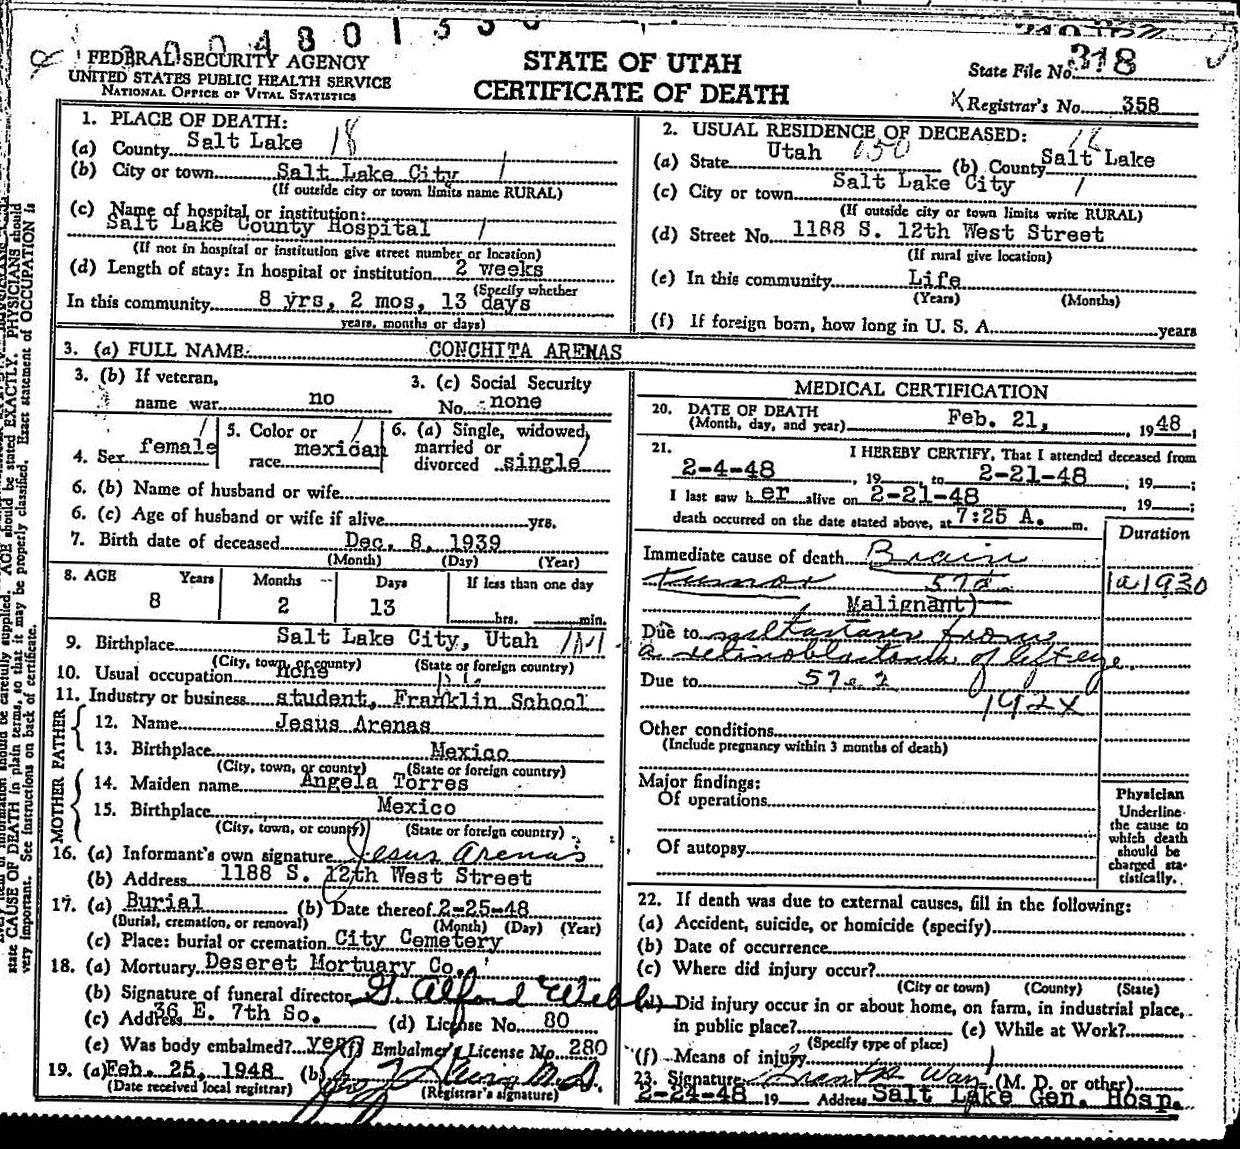 0 0 4 8 0 1 3 3 0
FEDERAL SECURITY AGENCY
UNITED STATES PUBLIC HEALTH SERVICE
NATIONAL OFFICE OF VITAL STATISTICS
STATE OF UTAH
CERTIFICATE OF DEATH
State File No. 318
Registrar's No. 358
1. PLACE OF DEATH:
(a) County Salt Lake 18
(b) City or town Salt Lake City 1
(If outside city or town limits name RURAL)
(c) Name of hospital or institution:
Salt Lake County Hospital 1
(If not in hospital or institution give street number or location)
(d) Length of stay: In hospital or institution 2 weeks
(Specify whether
In this community 8 yrs, 2 mos, 13 days
years, months or days)
2. USUAL RESIDENCE OF DECEASED:
(a) State Utah 050 (b) County Salt Lake
(c) City or town Salt Lake City 1
(If outside city or town limits write RURAL)
(d) Street No. 1188 S. 12th West Street
(If rural give location)
(e) In this community Life
(Years) (Months)
(f) If foreign born, how long in U. S. A. years
3. (a) FULL NAME: CONCHITA ARENAS
3. (b) If veteran,
name war no
3. (c) Social Security
No. none
4. Sex female
5. Color or
race mexican
6. (a) Single, widowed,
married or
divorced single
6. (b) Name of husband or wife
6. (c) Age of husband or wife if alive yrs.
7. Birth date of deceased Dec. 8, 1939
(Month) (Day) (Year)
8. AGE Years Months Days If less than one day
8 2 13 hrs. min.
9. Birthplace Salt Lake City, Utah
(City, town, or county) (State or foreign country)
10. Usual occupation none
11. Industry or business student, Franklin School
FATHER
12. Name Jesus Arenas
13. Birthplace Mexico
(City, town, or county) (State or foreign country)
MOTHER
14. Maiden name Angela Torres
15. Birthplace Mexico
(City, town, or county) (State or foreign country)
16. (a) Informant's own signature Jesus Arenas
(b) Address 1188 S. 12th West Street
17. (a) Burial (b) Date thereof 2-25-48
(Burial, cremation, or removal) (Month) (Day) (Year)
(c) Place: burial or cremation City Cemetery
18. (a) Mortuary Deseret Mortuary Co.
(b) Signature of funeral director G. Alford Webb
(c) Address 36 E. 7th So. (d) License No. 80
(e) Was body embalmed? yes (f) Embalmer's License No. 280
19. (a) Feb. 25, 1948 (b)
(Date received local registrar) (Registrar's signature)
MEDICAL CERTIFICATION
20. DATE OF DEATH
(Month, day, and year) Feb. 21, , 19 48 ;
21. I HEREBY CERTIFY, That I attended deceased from
2-4-48 , 19 , to 2-21-48 , 19 ;
I last saw h er alive on 2-21-48 , 19 ;
death occurred on the date stated above, at 7:25 A. m.
Duration
Immediate cause of death Brain
tumor 57d 1a1930
Malignant)
Due to metastases from
a retinoblastoma of left eye.
Due to 57e2
192x
Other conditions
(Include pregnancy within 3 months of death)
Major findings:
Of operations
Of autopsy
Physician
Underline
the cause to
which death
should be
charged sta-
tistically.
22. If death was due to external causes, fill in the following:
(a) Accident, suicide, or homicide (specify)
(b) Date of occurrence
(c) Where did injury occur?
(City or town) (County) (State)
(d) Did injury occur in or about home, on farm, in industrial place,
in public place? (e) While at Work?
(Specify type of place)
(f) Means of injury
23. Signature Grant R Way (M. D. or other)
2-24-48 19 Address Salt Lake Gen. Hosp.
state CAUSE OF DEATH in plain terms, so that it may be properly classified. Exact statement of OCCUPATION is
very important. See instructions on back of certificate.